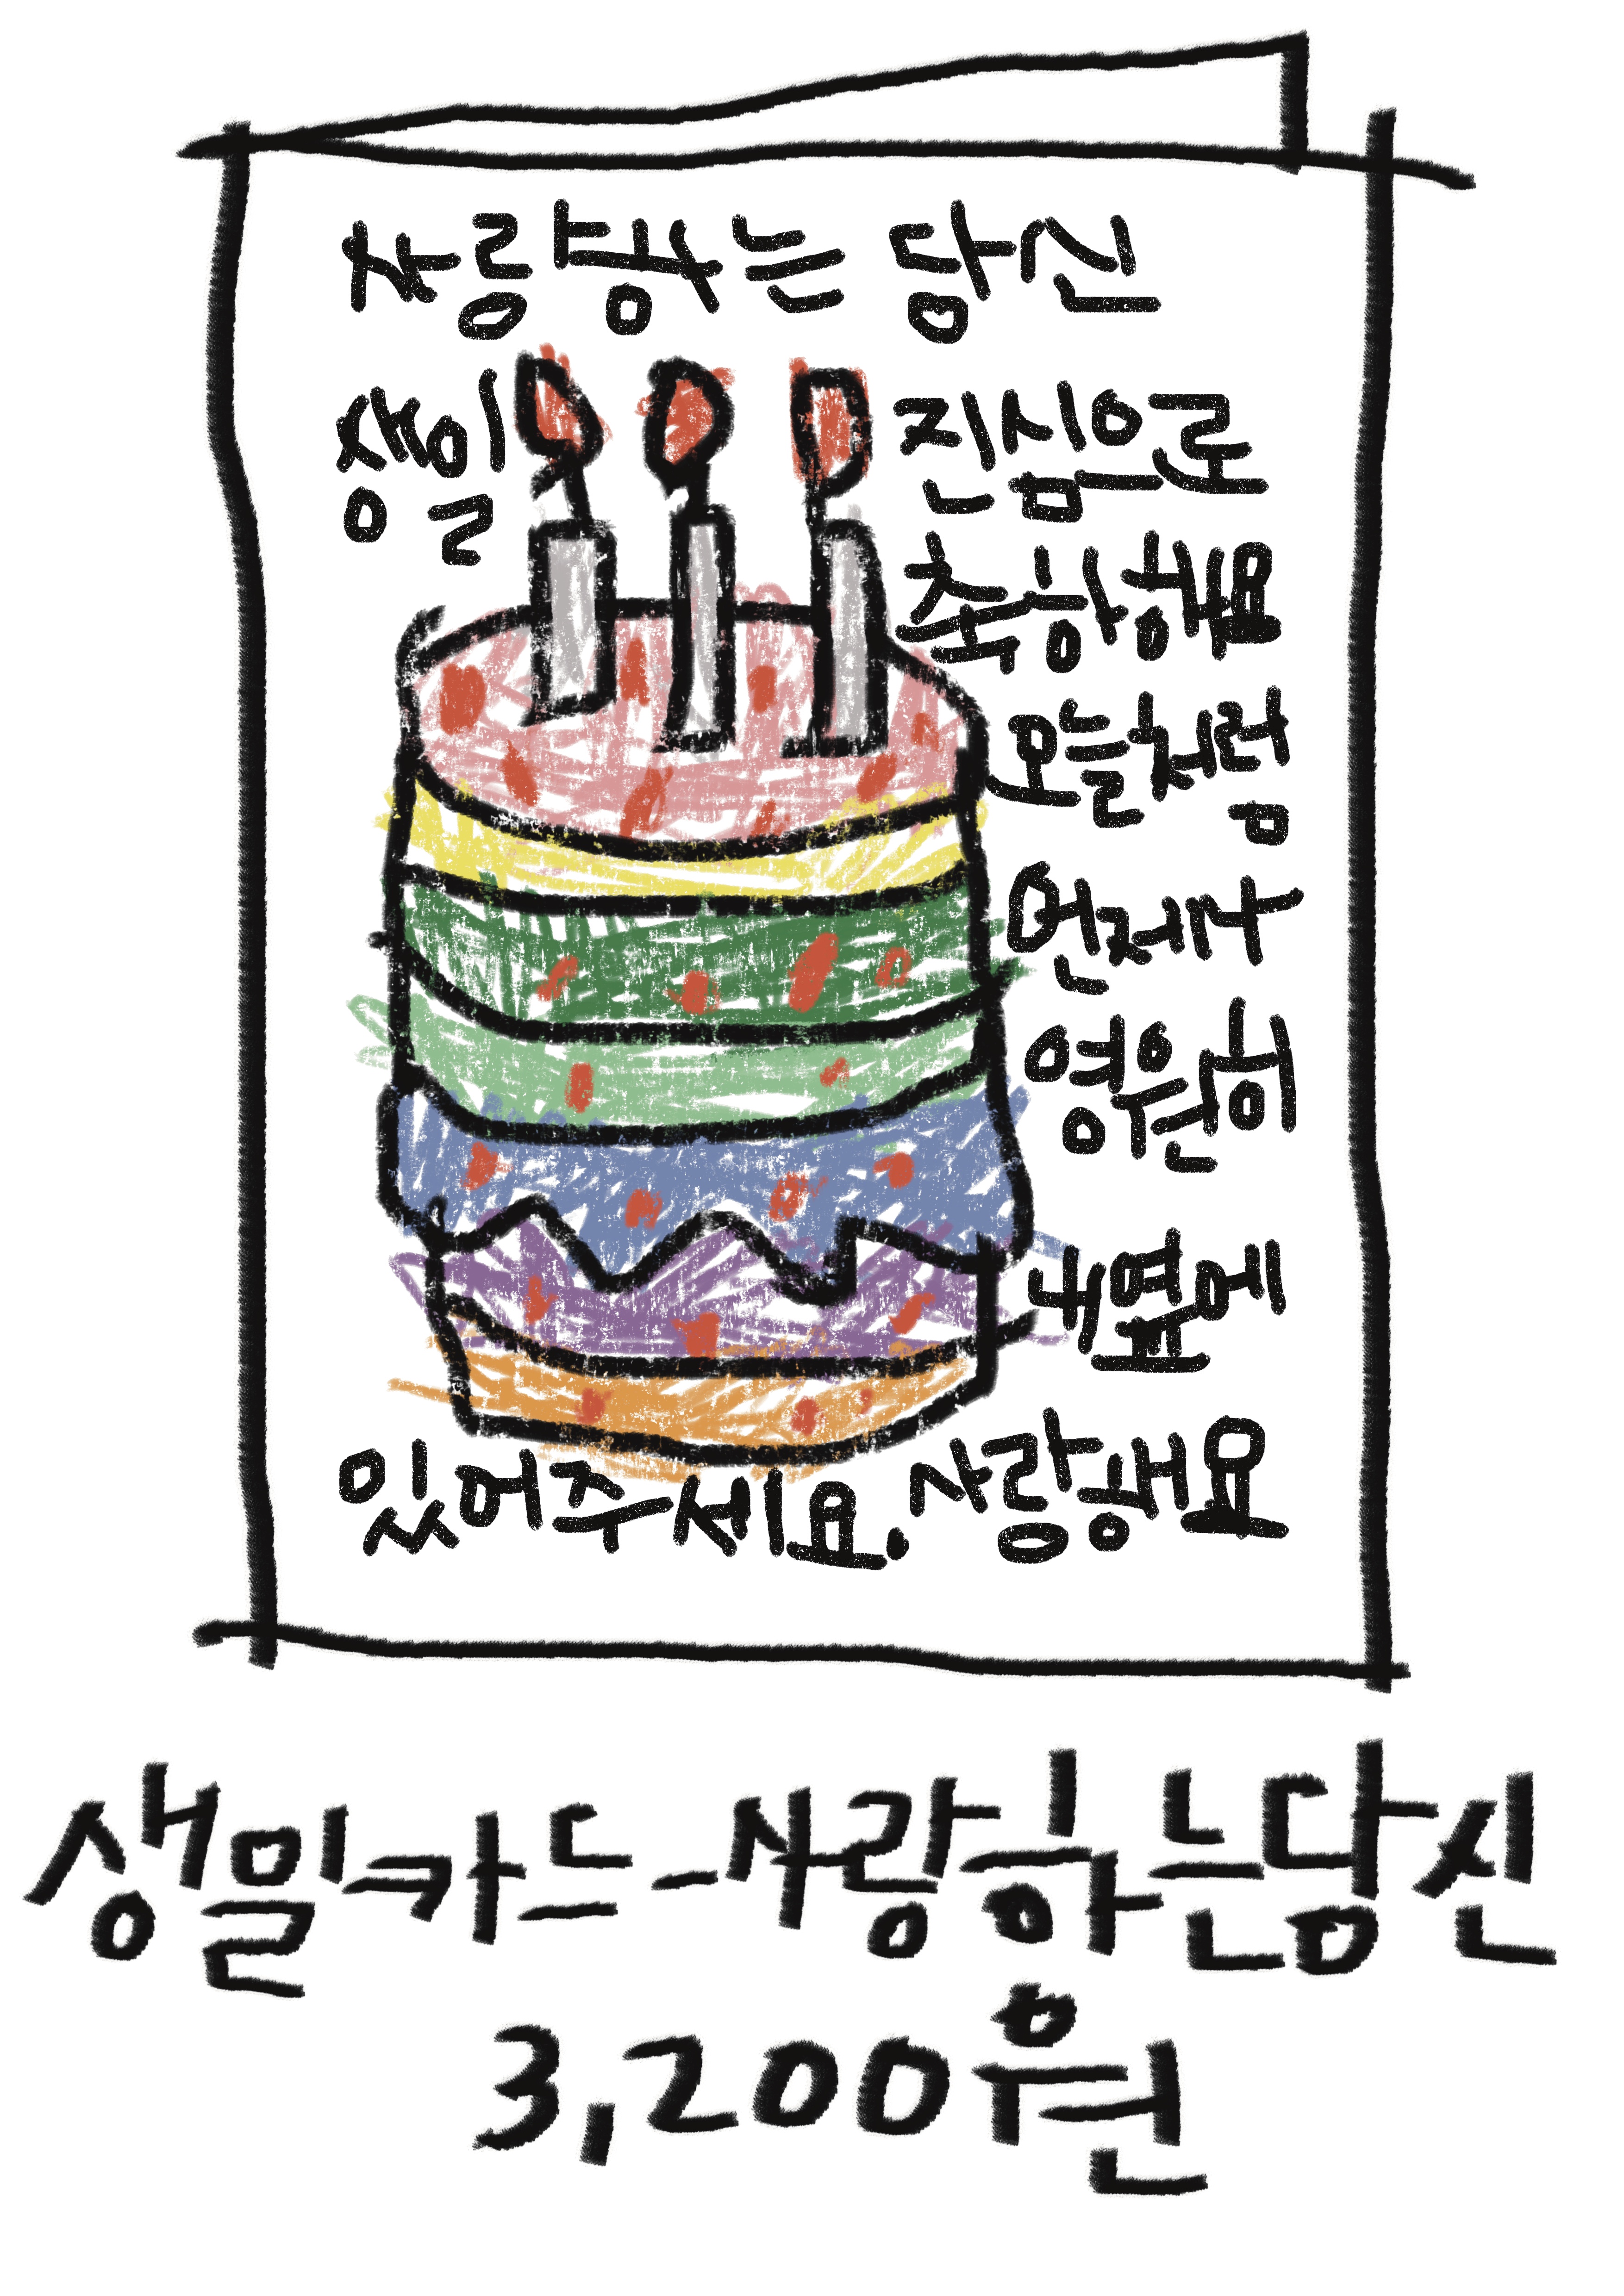 사랑하는 당신
생일 진심으로
축하해요
오늘처럼
언제나
영원히
내옆에
있어주세요. 사랑해요
생일카드-사랑하는당신
3,200원